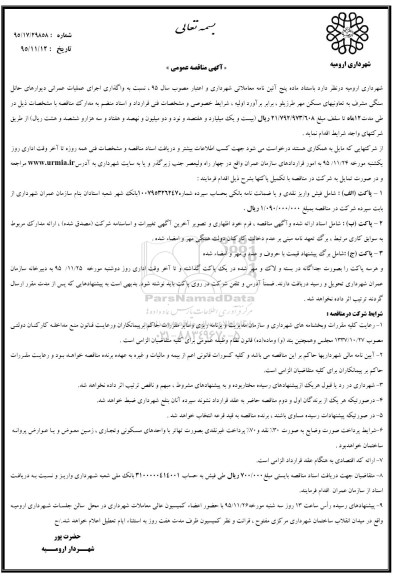 بسمه تعالی
شماره : ۹۵/۱۷/۲۹۸۵۸
تاریخ : ۹۵/۱۱/۱۲
شهرداری ارومیه
« آگهی مناقصه عمومی »
شهرداری ارومیه درنظر دارد باستناد ماده پنج آئین نامه معاملاتی شهرداری و اعتبار مصوب سال ۹۵ ، نسبت به واگذاری اجرای عملیات عمرانی دیوارهای حائل
سنگی مشرف به تعاونیهای مسکن مهر طرزیلو ، برابر برآورد اولیه ، شرایط خصوصی و مشخصات فنی قرارداد و اسناد منضم به مدارک مناقصه با مشخصات ذیل در
طی مدت ۱۲ماه تا سقف مبلغ ۲۱/۷۹۲/۹۷۳/۶۰۸ ریال (بیست و یک میلیارد و هفتصد و نود و دو میلیون و نهصد و هفتاد و سه هزار و ششصد و هشت ریال) از طریق
شرکتهای واجد شرایط اقدام نماید .
از شرکتهایی که مایل به همکاری هستند درخواست می شود جهت کسب اطلاعات بیشتر و دریافت اسناد مناقصه و مشخصات فنی همه روزه تا آخر وقت اداری روز
یکشنبه مورخه ۹۵/۱۱/۲۴ به امور قراردادهای سازمان عمران واقع در چهار راه ولیعصر جنب زیرگذر و یا به سایت شهرداری به آدرس www.urmia.ir مراجعه
و در صورت تمایل به شرکت در مناقصه با تکمیل پاکتها بشرح ذیل اقدام فرمایند :
۱ – پاکت (الف) : شامل فیش واریز نقدی و یا ضمانت نامه بانکی بحساب سپرده شماره بانک شهر شعبه استادان بنام سازمان عمران شهرداری از
بابت سپرده شرکت در مناقصه بمبلغ ۱/۰۹۰/۰۰۰/۰۰۰ ریال .
۲ – پاکت (ب) : شامل اسناد ارائه شده و آگهی مناقصه ، فرم خود اظهاری و تصویر آخرین آگهی تغییرات و اساسنامه شرکت (مصدق شده) ، ارائه مدارک مربوط
به سوابق کاری مرتبط ، برگ تعهد نامه مبنی بر عدم دخالت کارکنان دولت همگی مهر و امضاء شده .
۳ – پاکت (ج) : شامل برگ پیشنهاد قیمت با حروف و عدد و مهر و امضاء شده .
و هرسه پاکت را بصورت جداگانه در بسته و لاک و مهر شده در یک پاکت گذاشته و تا آخر وقت اداری روز دوشنبه مورخه ۹۵/۱۱/۲۵ به دبیرخانه سازمان
عمران شهرداری تحویل و رسید دریافت دارند. ضمناً آدرس و تلفن شرکت در روی پاکت باید نوشته شود. بدیهی است به پیشنهادهایی که پس از مدت مقرر ارسال
گردند ترتیب اثر داده نخواهد شد .
شرایط شرکت درمناقصه :
۱- رعایت کلیه مقررات و بخشنامه های شهرداری و سازمان مدیریت و برنامه ریزی و سایر مقررات حاکم بر پیمانکاران و رعایت قانون منع مداخله کارکنان دولتی
مصوب ۱۳۳۷/۱۰/۲۷ مجلس و همچنین بند (و) ماده(ده) قانون نظام وظیفه عمومی برای کلیه متقاضیان الزامی است .
۲- آیین نامه مالی شهرداریها حاکم بر این مناقصه می باشد و کلیه کسورات قانونی اعم از بیمه و مالیات و غیره به عهده برنده مناقصه خواهد بود و رعایت مقررات
حاکم بر پیمانکاران برای کلیه متقاضیان الزامی است.
۳- شهرداری در رد یا قبول هریک از پیشنهادهای رسیده مختار بوده و به پیشنهادهای مشروط ، مبهم و ناقص ترتیب اثر داده نخواهد شد.
۴- درصورتیکه هر یک از برندگان اول و دوم مناقصه حاضر به عقد قرارداد نشوند سپرده آنان بنفع شهرداری ضبط خواهد شد.
۵- در صورتیکه پیشنهادات رسیده مساوی باشند ، برنده مناقصه به قید قرعه انتخاب خواهد شد .
۶- شرایط پرداخت صورت وضایع به صورت ۳۰٪ نقد و ۷۰٪ پرداخت غیرنقدی بصورت تهاتر با واحدهای مسکونی و تجاری ، زمین معوض و یا عوارض پروانه
ساختمان خواهدبود .
۷- ارائه کد اقتصادی به هنگام عقد قرارداد الزامی است.
۸- متقاضیان جهت دریافت اسناد مناقصه بایستی مبلغ ۷۰۰/۰۰۰ ریال طی فیش به حساب بانک ملی شعبه شهرداری واریز و نسبت به دریافت
اسناد از سازمان عمران اقدام فرمایند.
۹- پیشنهادهای رسیده رأس ساعت ۱۳ روز سه شنبه مورخه ۹۵/۱۱/۲۶ با حضور اعضاء کمیسیون عالی معاملات شهرداری در محل سالن جلسات شهرداری ارومیه
واقع در میدان انقلاب ساختمان شهرداری مرکزی مفتوح ، قرائت و نظر کمیسیون ظرف مدت هفت روز به استثناء ایام تعطیل اعلام خواهد شد.
حضرت پور
شهـــردار ارومیـــه
ParsNamadData
۰۲۱-۸۸۳۴۹۶۷۰-۵